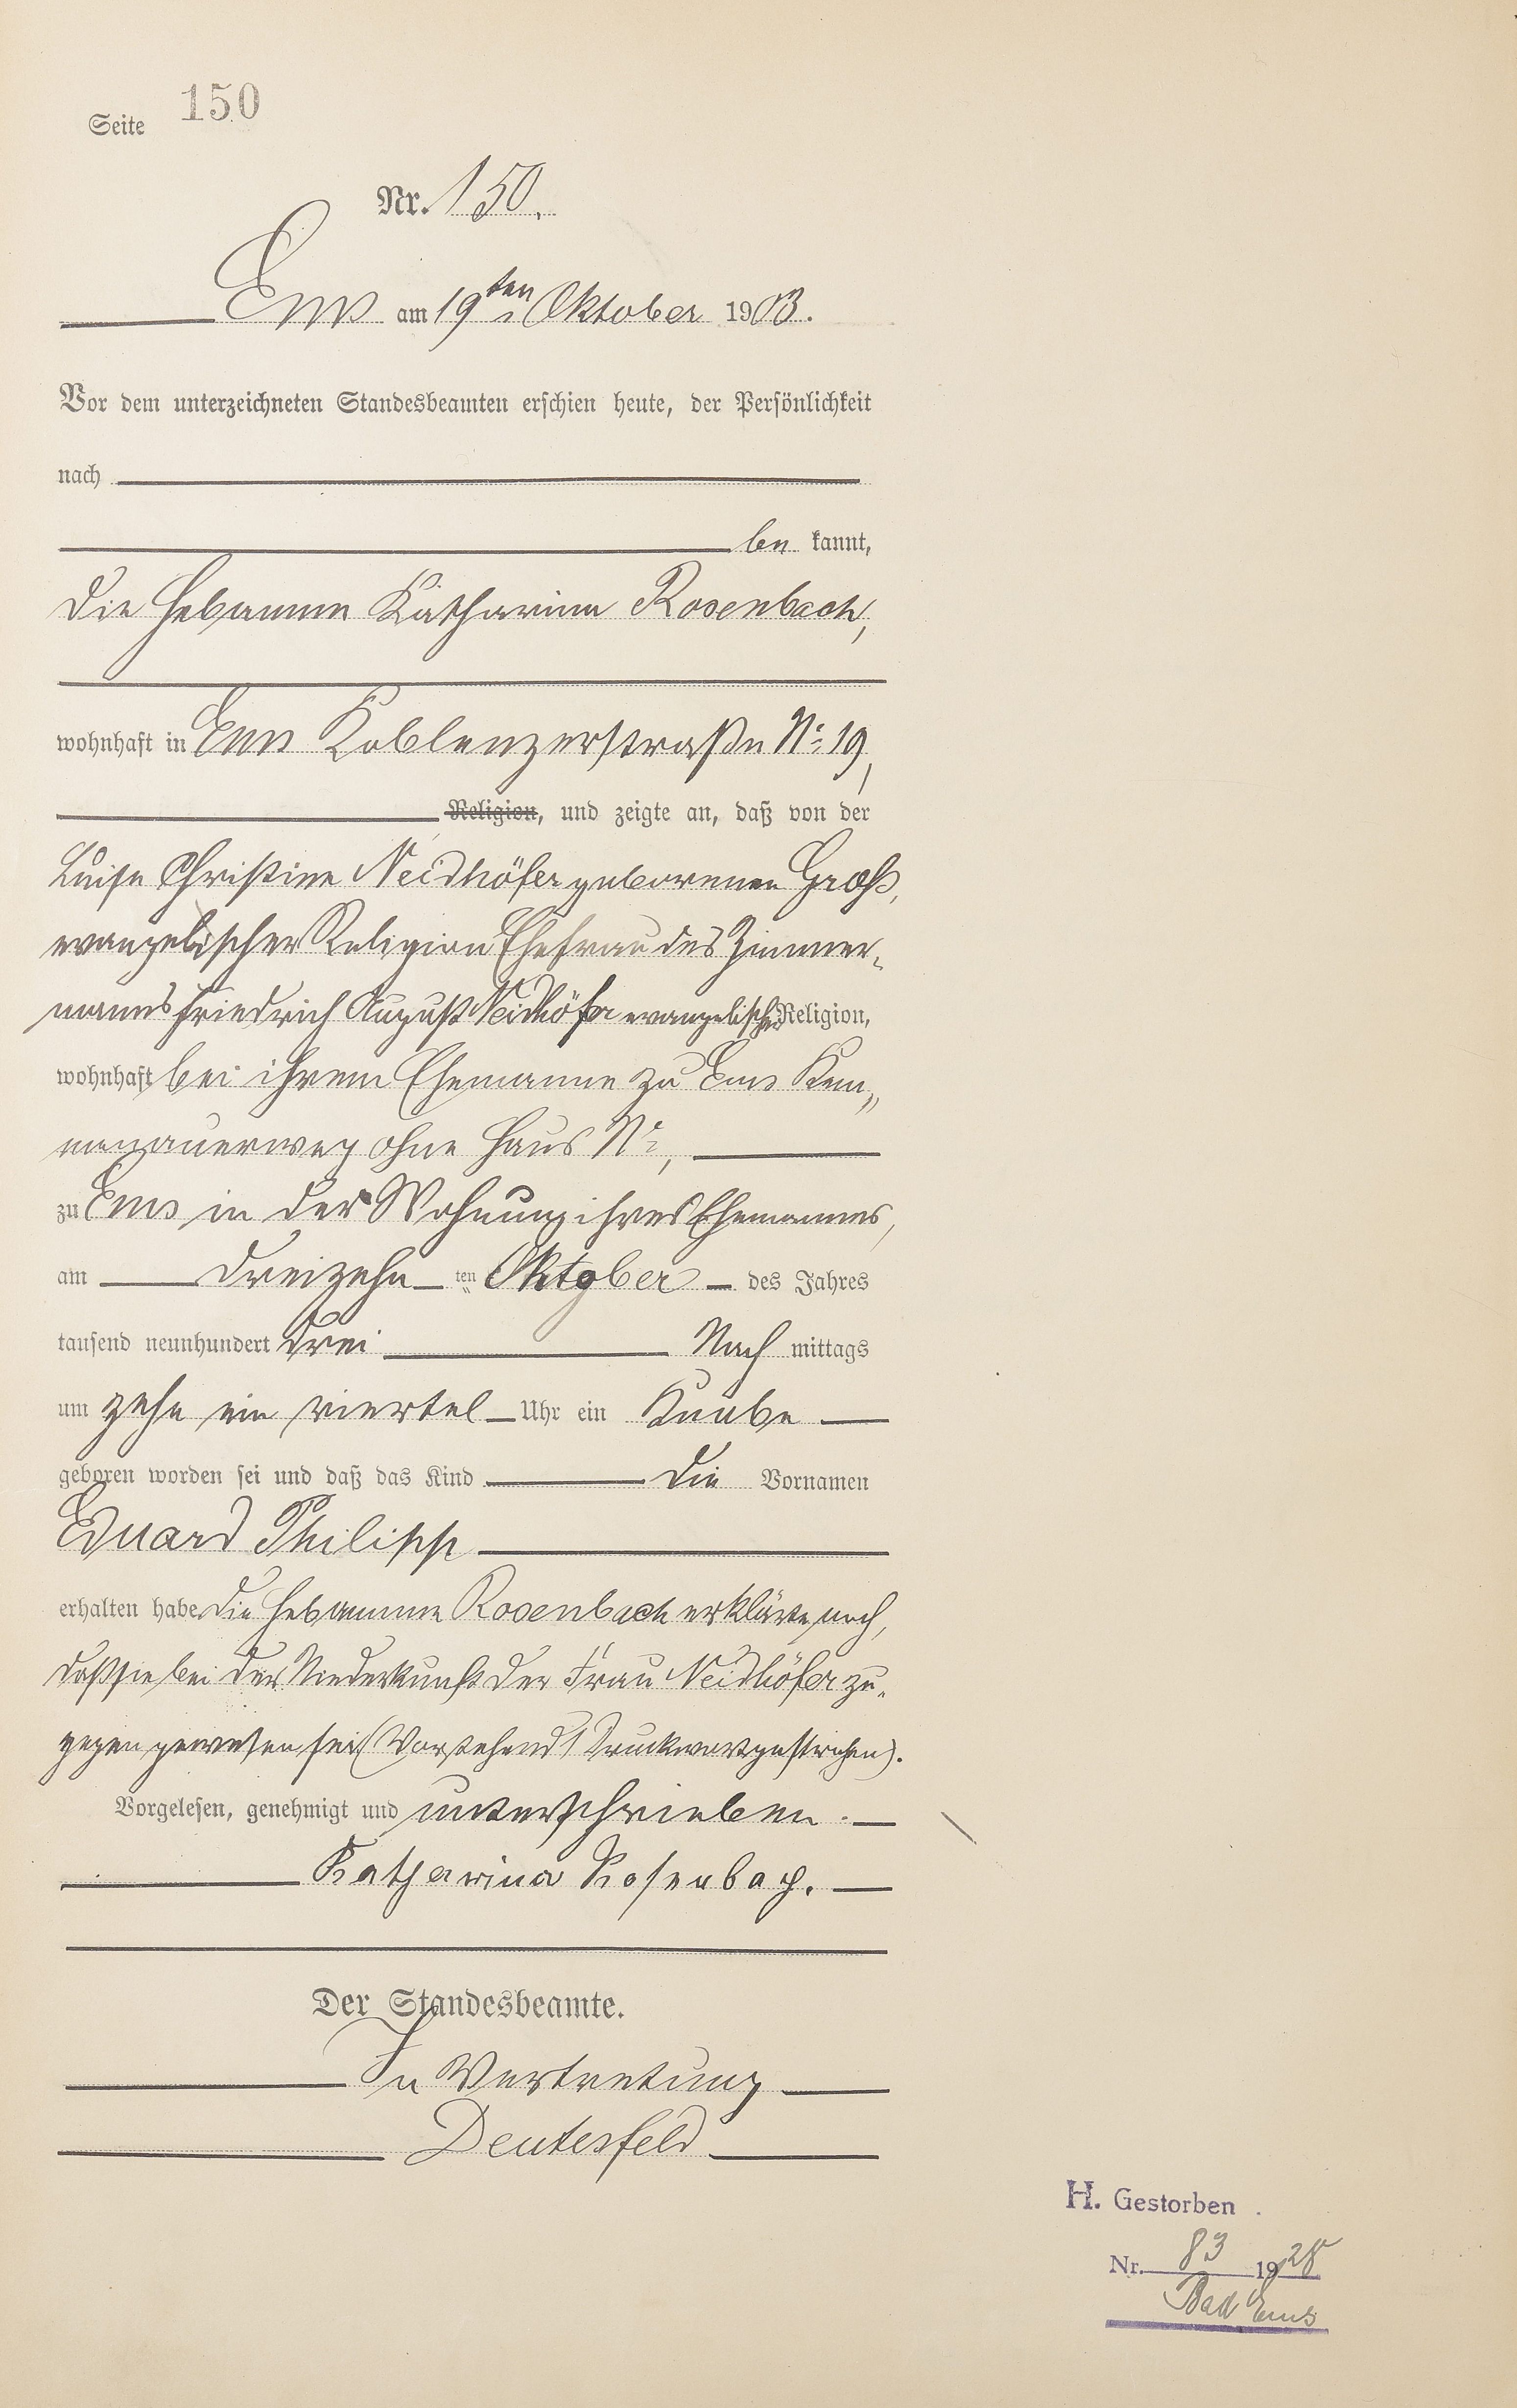 Seite 150
Nr. 150.
Ems am 19ten Oktober 1903.
Vor dem unterzeichneten Standesbeamten erschien heute, der Persönlichkeit
nach
be kannt,
die Hebamme Katharina Rosenbach,
wohnhaft in Ems Koblenzerstraße No 19,
Religion, und zeigte an, daß von der
Luise Christine Neidhöfer geborenen Groß,
evangelischer Religion Ehefrau des Zimmer-
manns Friedrich August Neidhöfer evangelischer Religion,
wohnhaft bei ihrem Ehemanne zu Ems Kem-
menauerweg ohne Haus No,
zu Ems in der Wohnung ihres Ehemannes,
am dreizehn ten Oktober des Jahres
tausend neunhundert drei Nach mittags
um zehn ein viertel Uhr ein Knabe
geboren worden sei und daß das Kind die Vornamen
Eduard Philipp
erhalten habe. Die Hebamme Rosenbach erklärte noch,
daß sie bei der Niederkunft der Frau Neidhöfer zu-
gegen gewesen sei (Vorstehend 1 Druckwort gestrichen).
Vorgelesen, genehmigt und unterschrieben.
Katharina Rosenbach.
Der Standesbeamte.
In Vertretung
Deutesfeld
H. Gestorben
Nr. 83 1928
Bad Ems